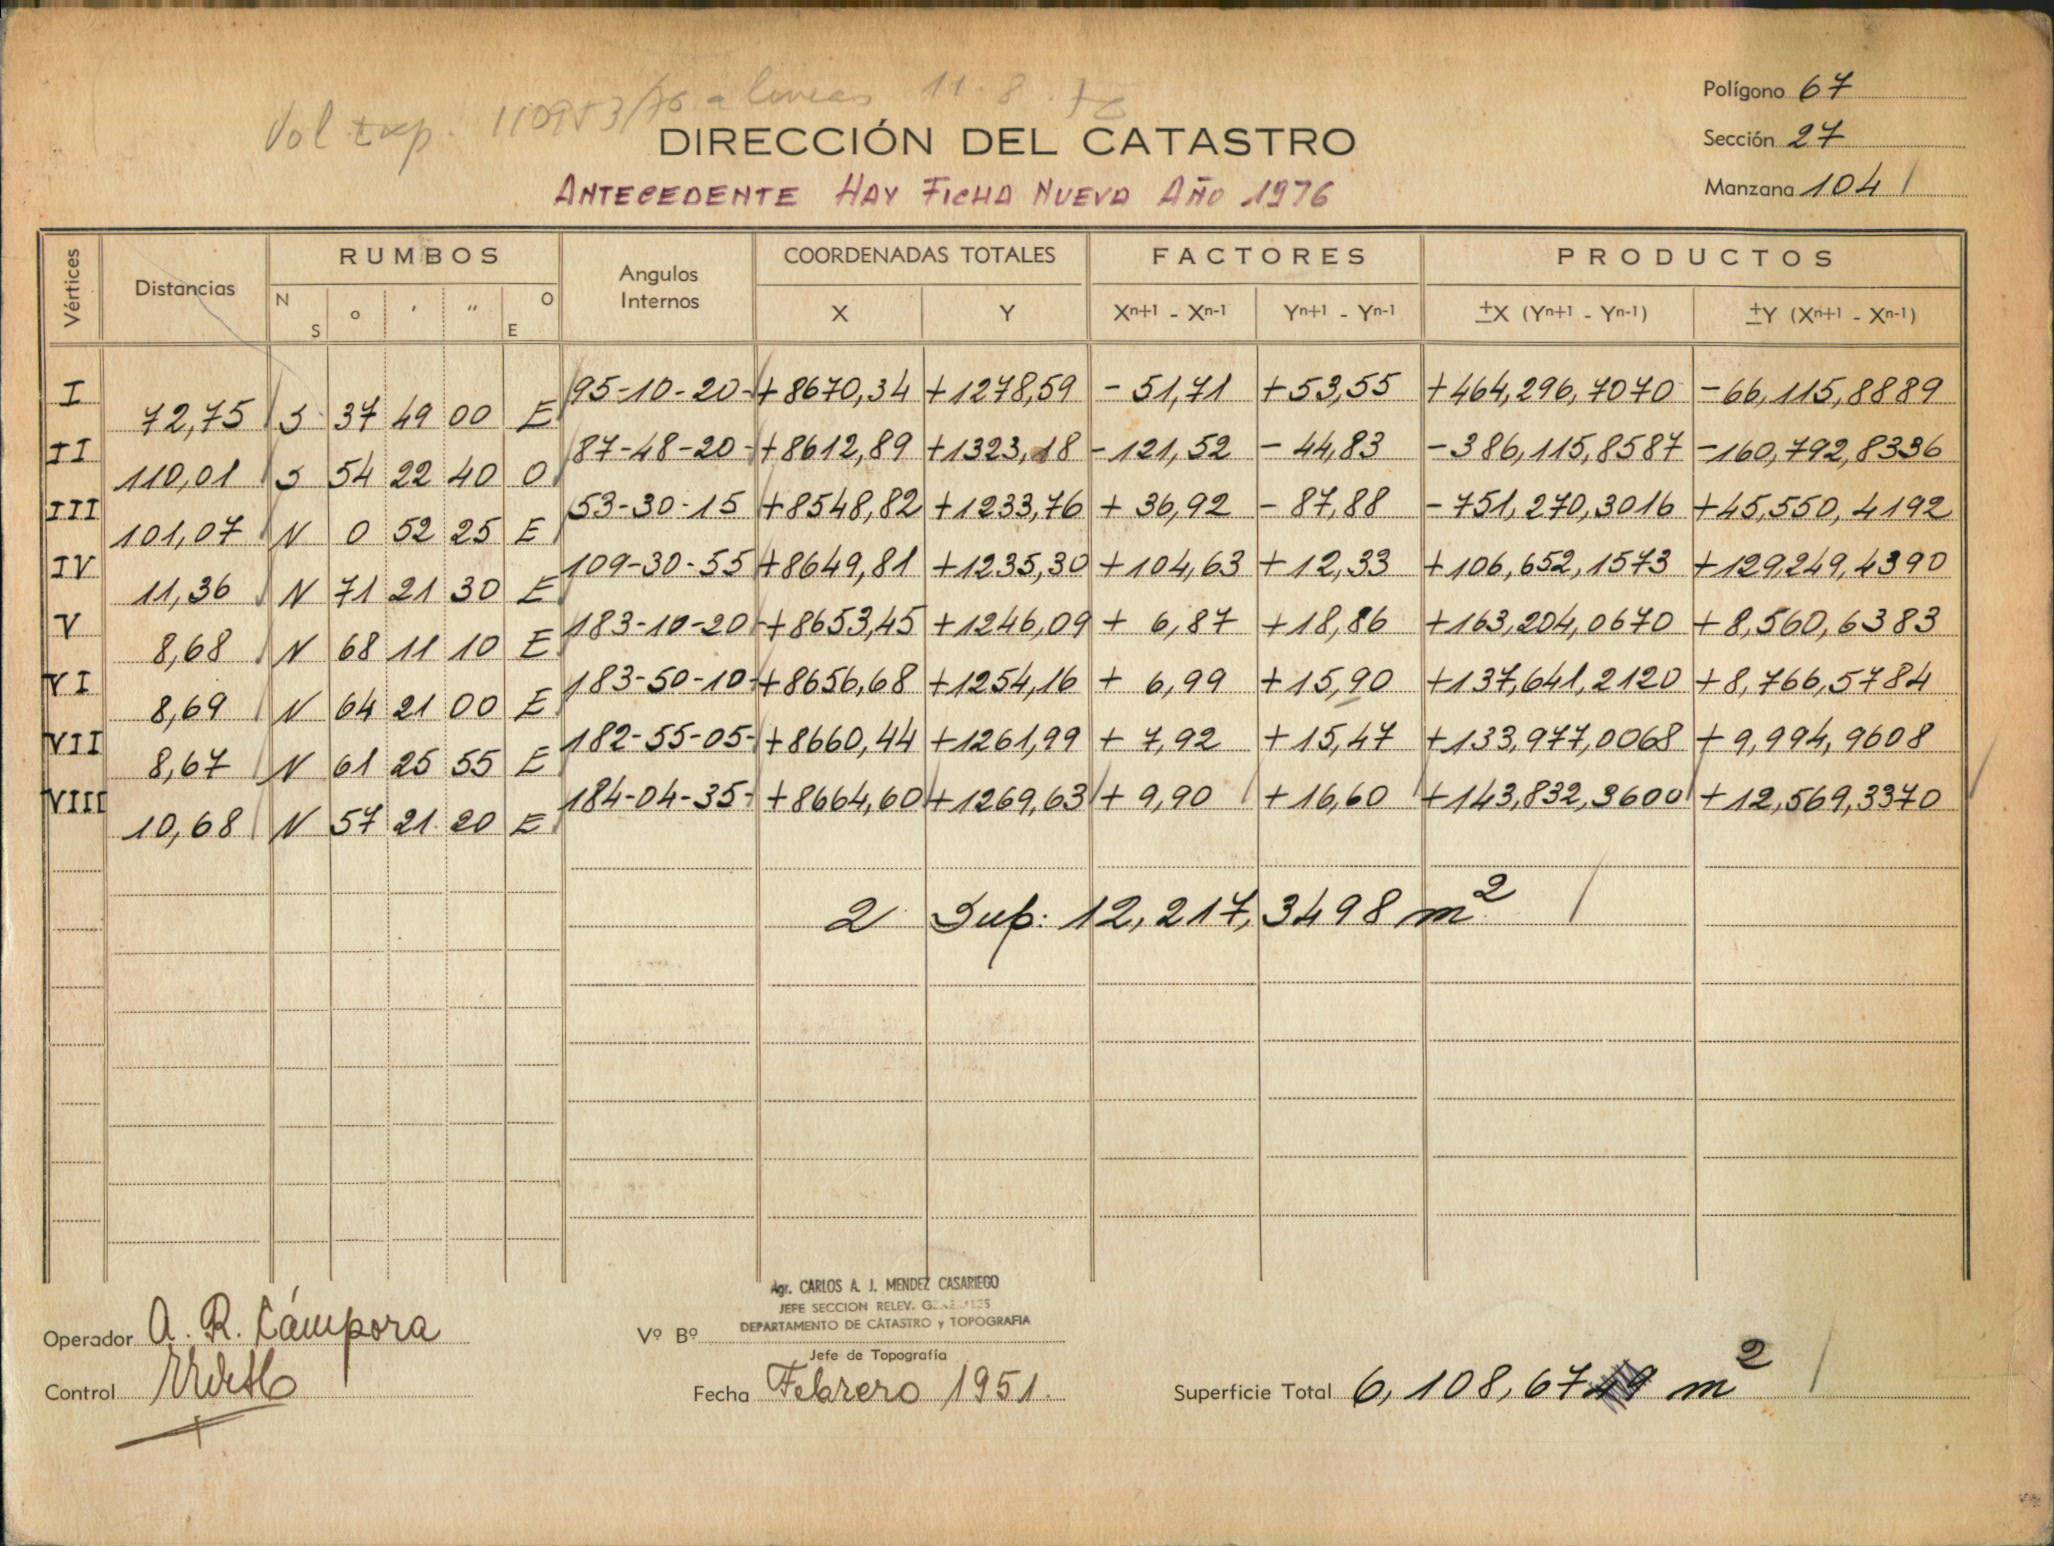 Vol Exp. 110953/76 a lineas 11.8.76
Polígono 67
DIRECCIÓN DEL CATASTRO
Sección 27
ANTECEDENTE HAY FICHA NUEVA AÑO 1976
Manzana 104
Vértices Distancias RUMBOS Angulos Internos COORDENADAS TOTALES FACTORES PRODUCTOS
N S o ' " O E X Y Xn+1 - Xn-1 Yn+1 - Yn-1 ±X (Yn+1 - Yn-1) ±Y (Xn+1 - Xn-1)
I 95-10-20- +8670,34 +1278,59 - 51,71 +53,55 +464,296,7070 -66,115,8889
72,75 S 37 49 00 E
II 87-48-20- +8612,89 +1323,18 -121,52 - 44,83 -386,115,8587 -160,792,8336
110,01 S 54 22 40 O
III 53-30-15 +8548,82 +1233,76 + 36,92 - 87,88 -751,270,3016 +45,550,4192
101,07 N 0 52 25 E
IV 109-30-55 +8649,81 +1235,30 +104,63 +12,33 +106,652,1573 +129,249,4390
11,36 N 71 21 30 E
V 183-10-20- +8653,45 +1246,09 + 6,87 +18,86 +163,204,0670 +8,560,6383
8,68 N 68 11 10 E
VI 183-50-10- +8656,68 +1254,16 + 6,99 +15,90 +137,641,2120 +8,766,5784
8,69 N 64 21 00 E
VII 182-55-05- +8660,44 +1261,99 + 7,92 +15,47 +133,977,0068 +9,994,9608
8,67 N 61 25 55 E
VIII 184-04-35- +8664,60 +1269,63 + 9,90 +16,60 +143,832,3600 +12,569,3370
10,68 N 57 21 20 E
2 Sup: 12,217,3498 m²
Agr. CARLOS A. J. MENDEZ CASARIEGO
JEFE SECCION RELEV.
DEPARTAMENTO DE CATASTRO y TOPOGRAFIA
Operador A. R. Cámpora
Vº Bº
Jefe de Topografía
Control
Fecha Febrero 1951.
Superficie Total 6,108,67 m²